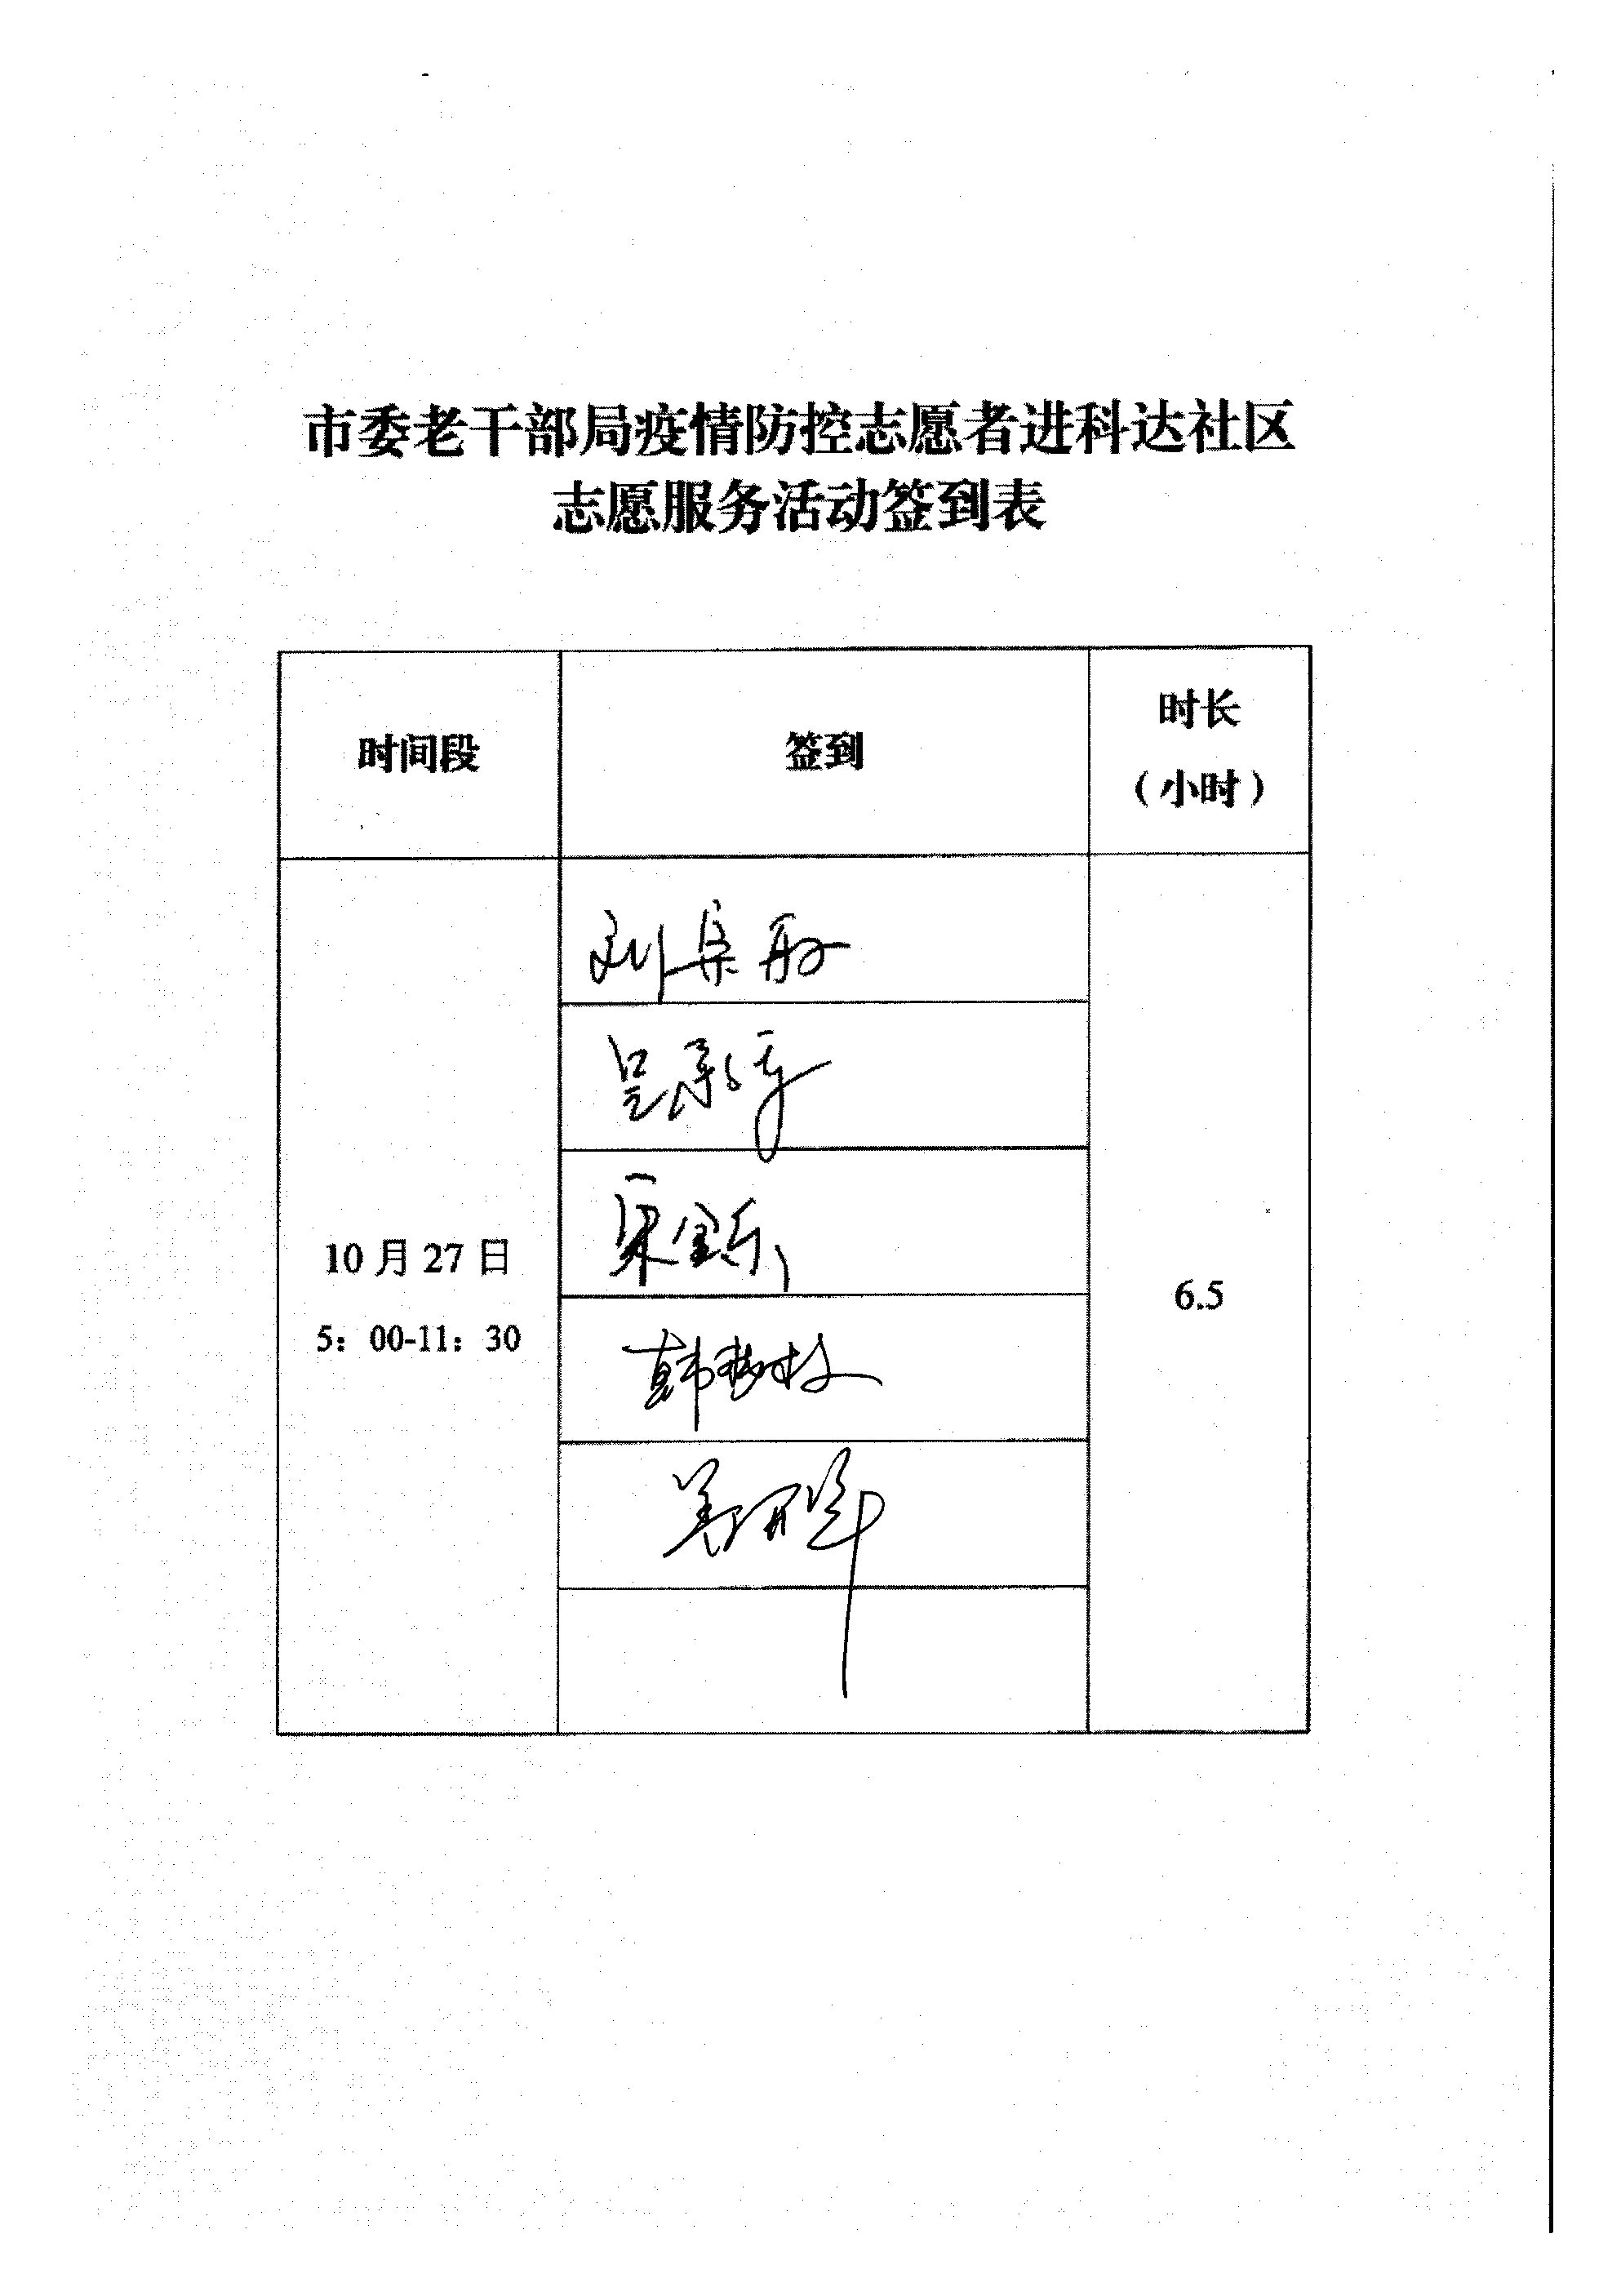 市委老干部局疫情防控志愿者进科达社区
志愿服务活动签到表
时间段
签到
时长
（小时）
10 月 27 日
5：00-11：30
6.5
刘
吴
宋
韩